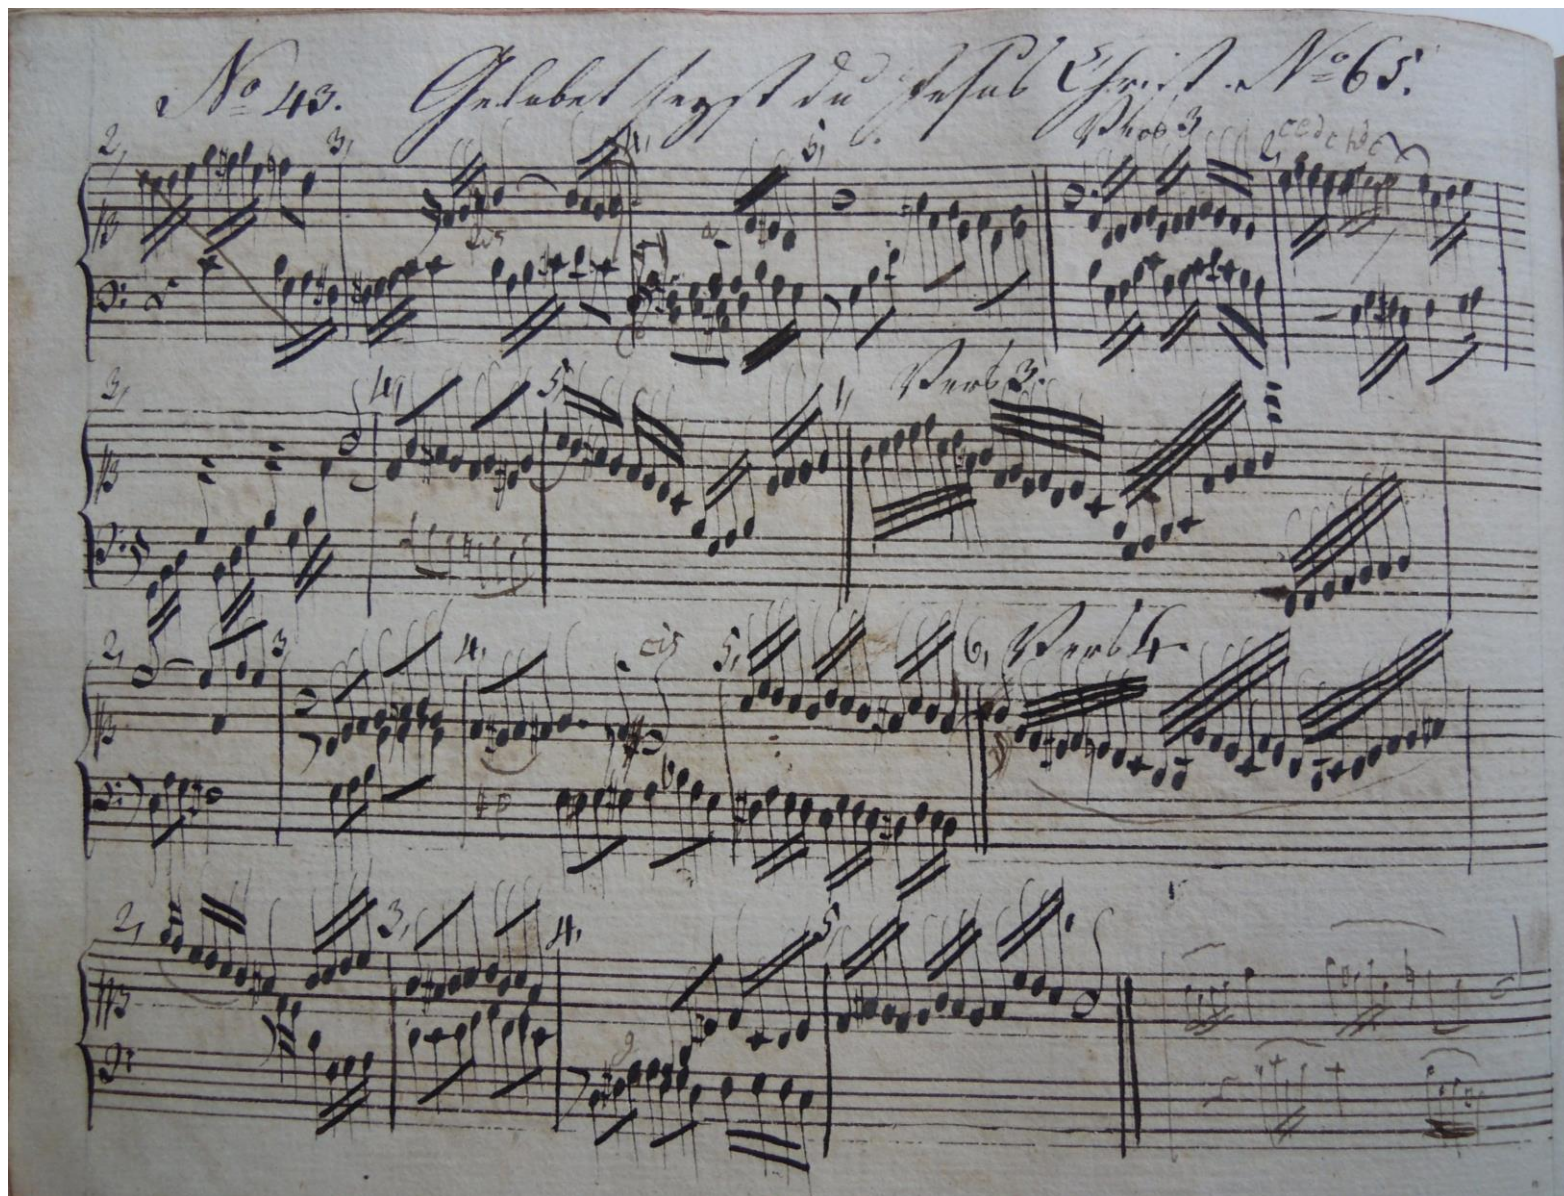 No 43. Gelobet seyst du Jesus Christ. No 65.
2, 3, 4, 5, Vers 3 2,
3, 4, 5, 1, Vers 3.
2, 3 4, cis 5, 6, Vers 4.
2, 3, 4, 5